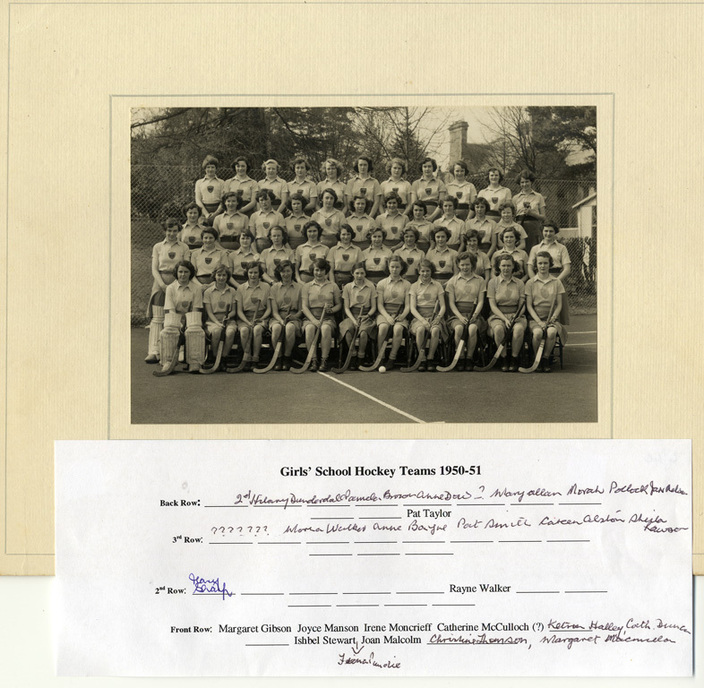 Girls' School Hockey Teams 1950-51
Back Row: 2nd Hilary Dunderdale Pamela Brown Anne Dow ? Mary Allan Morah Pollock
Pat Taylor
3rd Row: ? ? ? ? ? ? ? Morea Walker Anne Bayne Pat Smith Coreen Alston Sheila
Lawson
Mary
2nd Row: Sharp Rayne Walker
Front Row: Margaret Gibson Joyce Manson Irene Moncrieff Catherine McCulloch (?) Halley, Cath. Duncan
Ishbel Stewart, Joan Malcolm Christine Thomson, Margaret